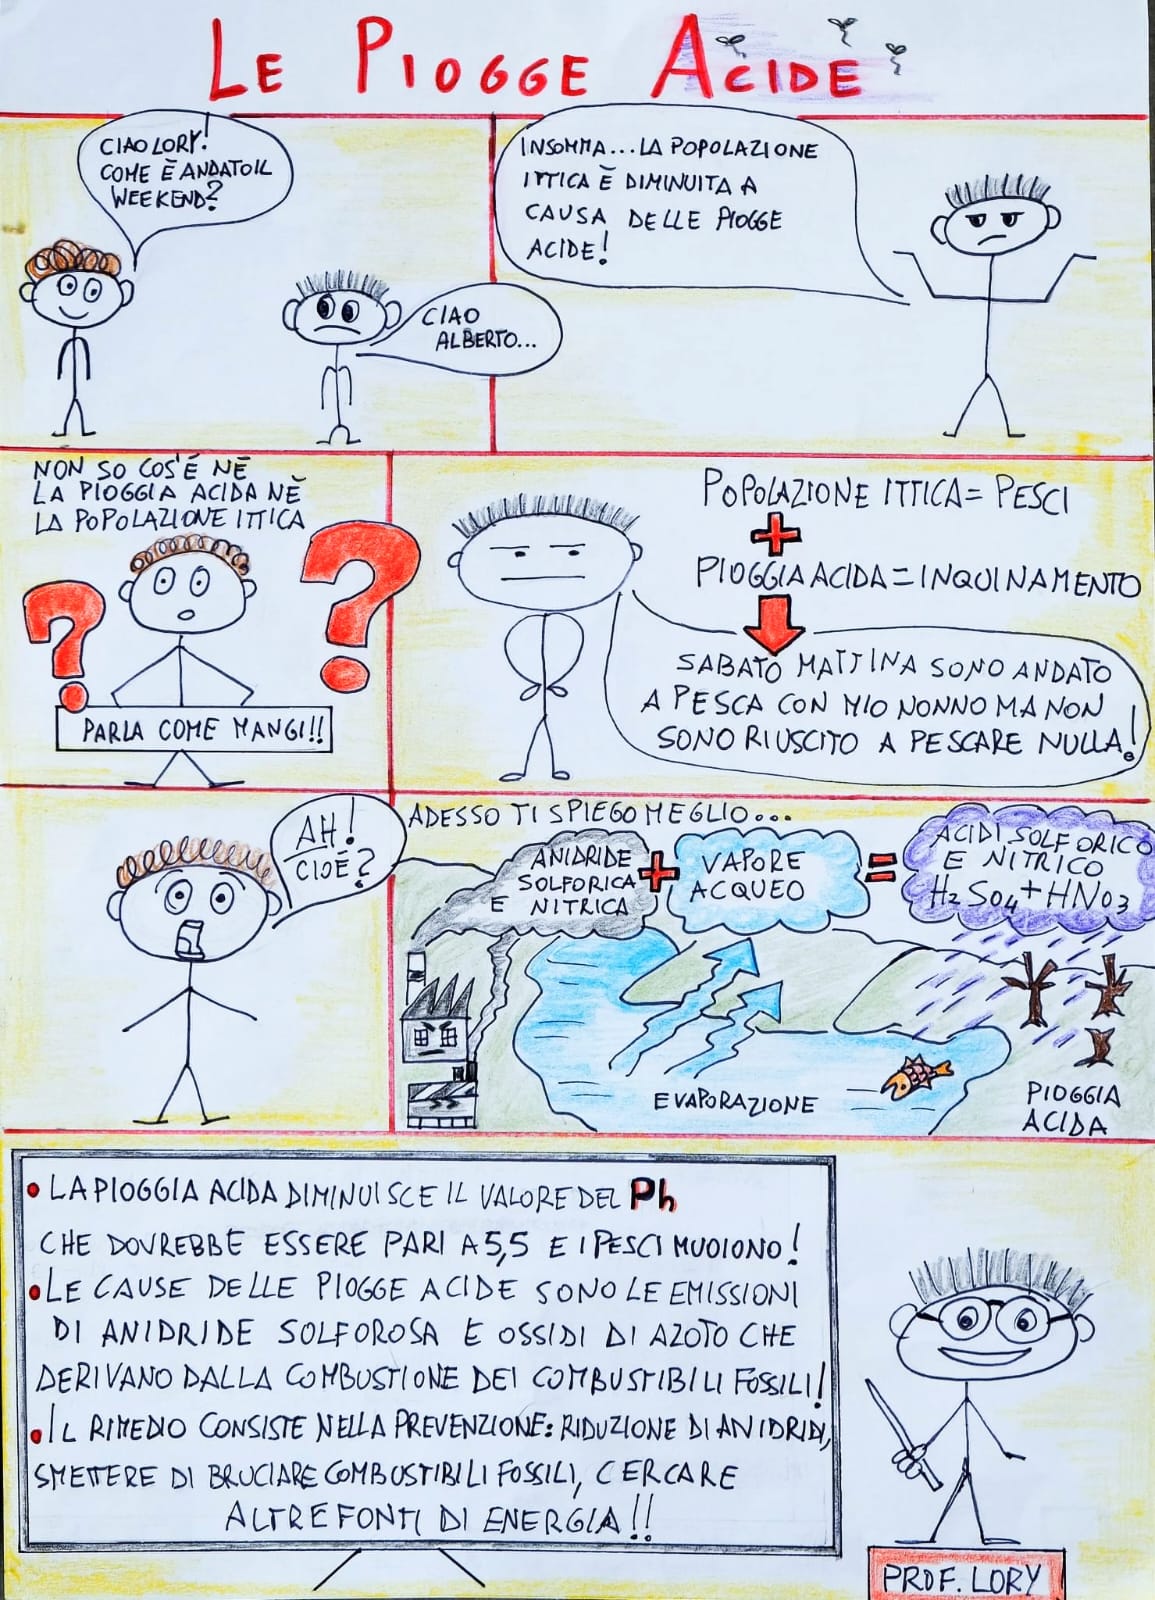 LE PIOGGE ACIDE
CIAO LORY!
COME È ANDATO IL
WEEKEND?
CIAO
ALBERTO...
INSOMMA...LA POPOLAZIONE
ITTICA È DIMINUITA A
CAUSA DELLE PIOGGE
ACIDE!
NON SO COS'É NÈ
LA PIOGGIA ACIDA NÈ
LA POPOLAZIONE ITTICA
? ?
PARLA COME MANGI!!
POPOLAZIONE ITTICA = PESCI
+
PIOGGIA ACIDA = INQUINAMENTO
SABATO MATTINA SONO ANDATO
A PESCA CON MIO NONNO MA NON
SONO RIUSCITO A PESCARE NULLA!
AH!
CIOÉ?
ADESSO TI SPIEGO MEGLIO...
ANIDRIDE
SOLFORICA
E NITRICA
+
VAPORE
ACQUEO
=
ACIDI SOLFORICO
E NITRICO
H2SO4+HNO3
EVAPORAZIONE
PIOGGIA
ACIDA
• LA PIOGGIA ACIDA DIMINUISCE IL VALORE DEL Ph
CHE DOVREBBE ESSERE PARI A 5,5 E I PESCI MUOIONO!
• LE CAUSE DELLE PIOGGE ACIDE SONO LE EMISSIONI
DI ANIDRIDE SOLFOROSA E OSSIDI DI AZOTO CHE
DERIVANO DALLA COMBUSTIONE DEI COMBUSTIBILI FOSSILI!
• IL RIMEDIO CONSISTE NELLA PREVENZIONE: RIDUZIONE DI ANIDRIDI,
SMETTERE DI BRUCIARE COMBUSTIBILI FOSSILI, CERCARE
ALTRE FONTI DI ENERGIA!!
PROF. LORY